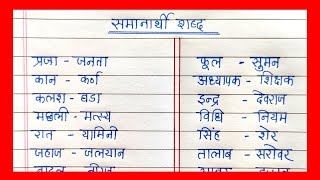 समानार्थी शब्द
प्रजा - जनता
कान - कर्ण
कलश - घडा
मछली - मत्स्य
रात - यामिनी
जहाज - जलयान
फूल - सुमन
अध्यापक - शिक्षक
इन्द्र - देवराज
विधि - नियम
सिंह - शेर
तालाब - सरोवर